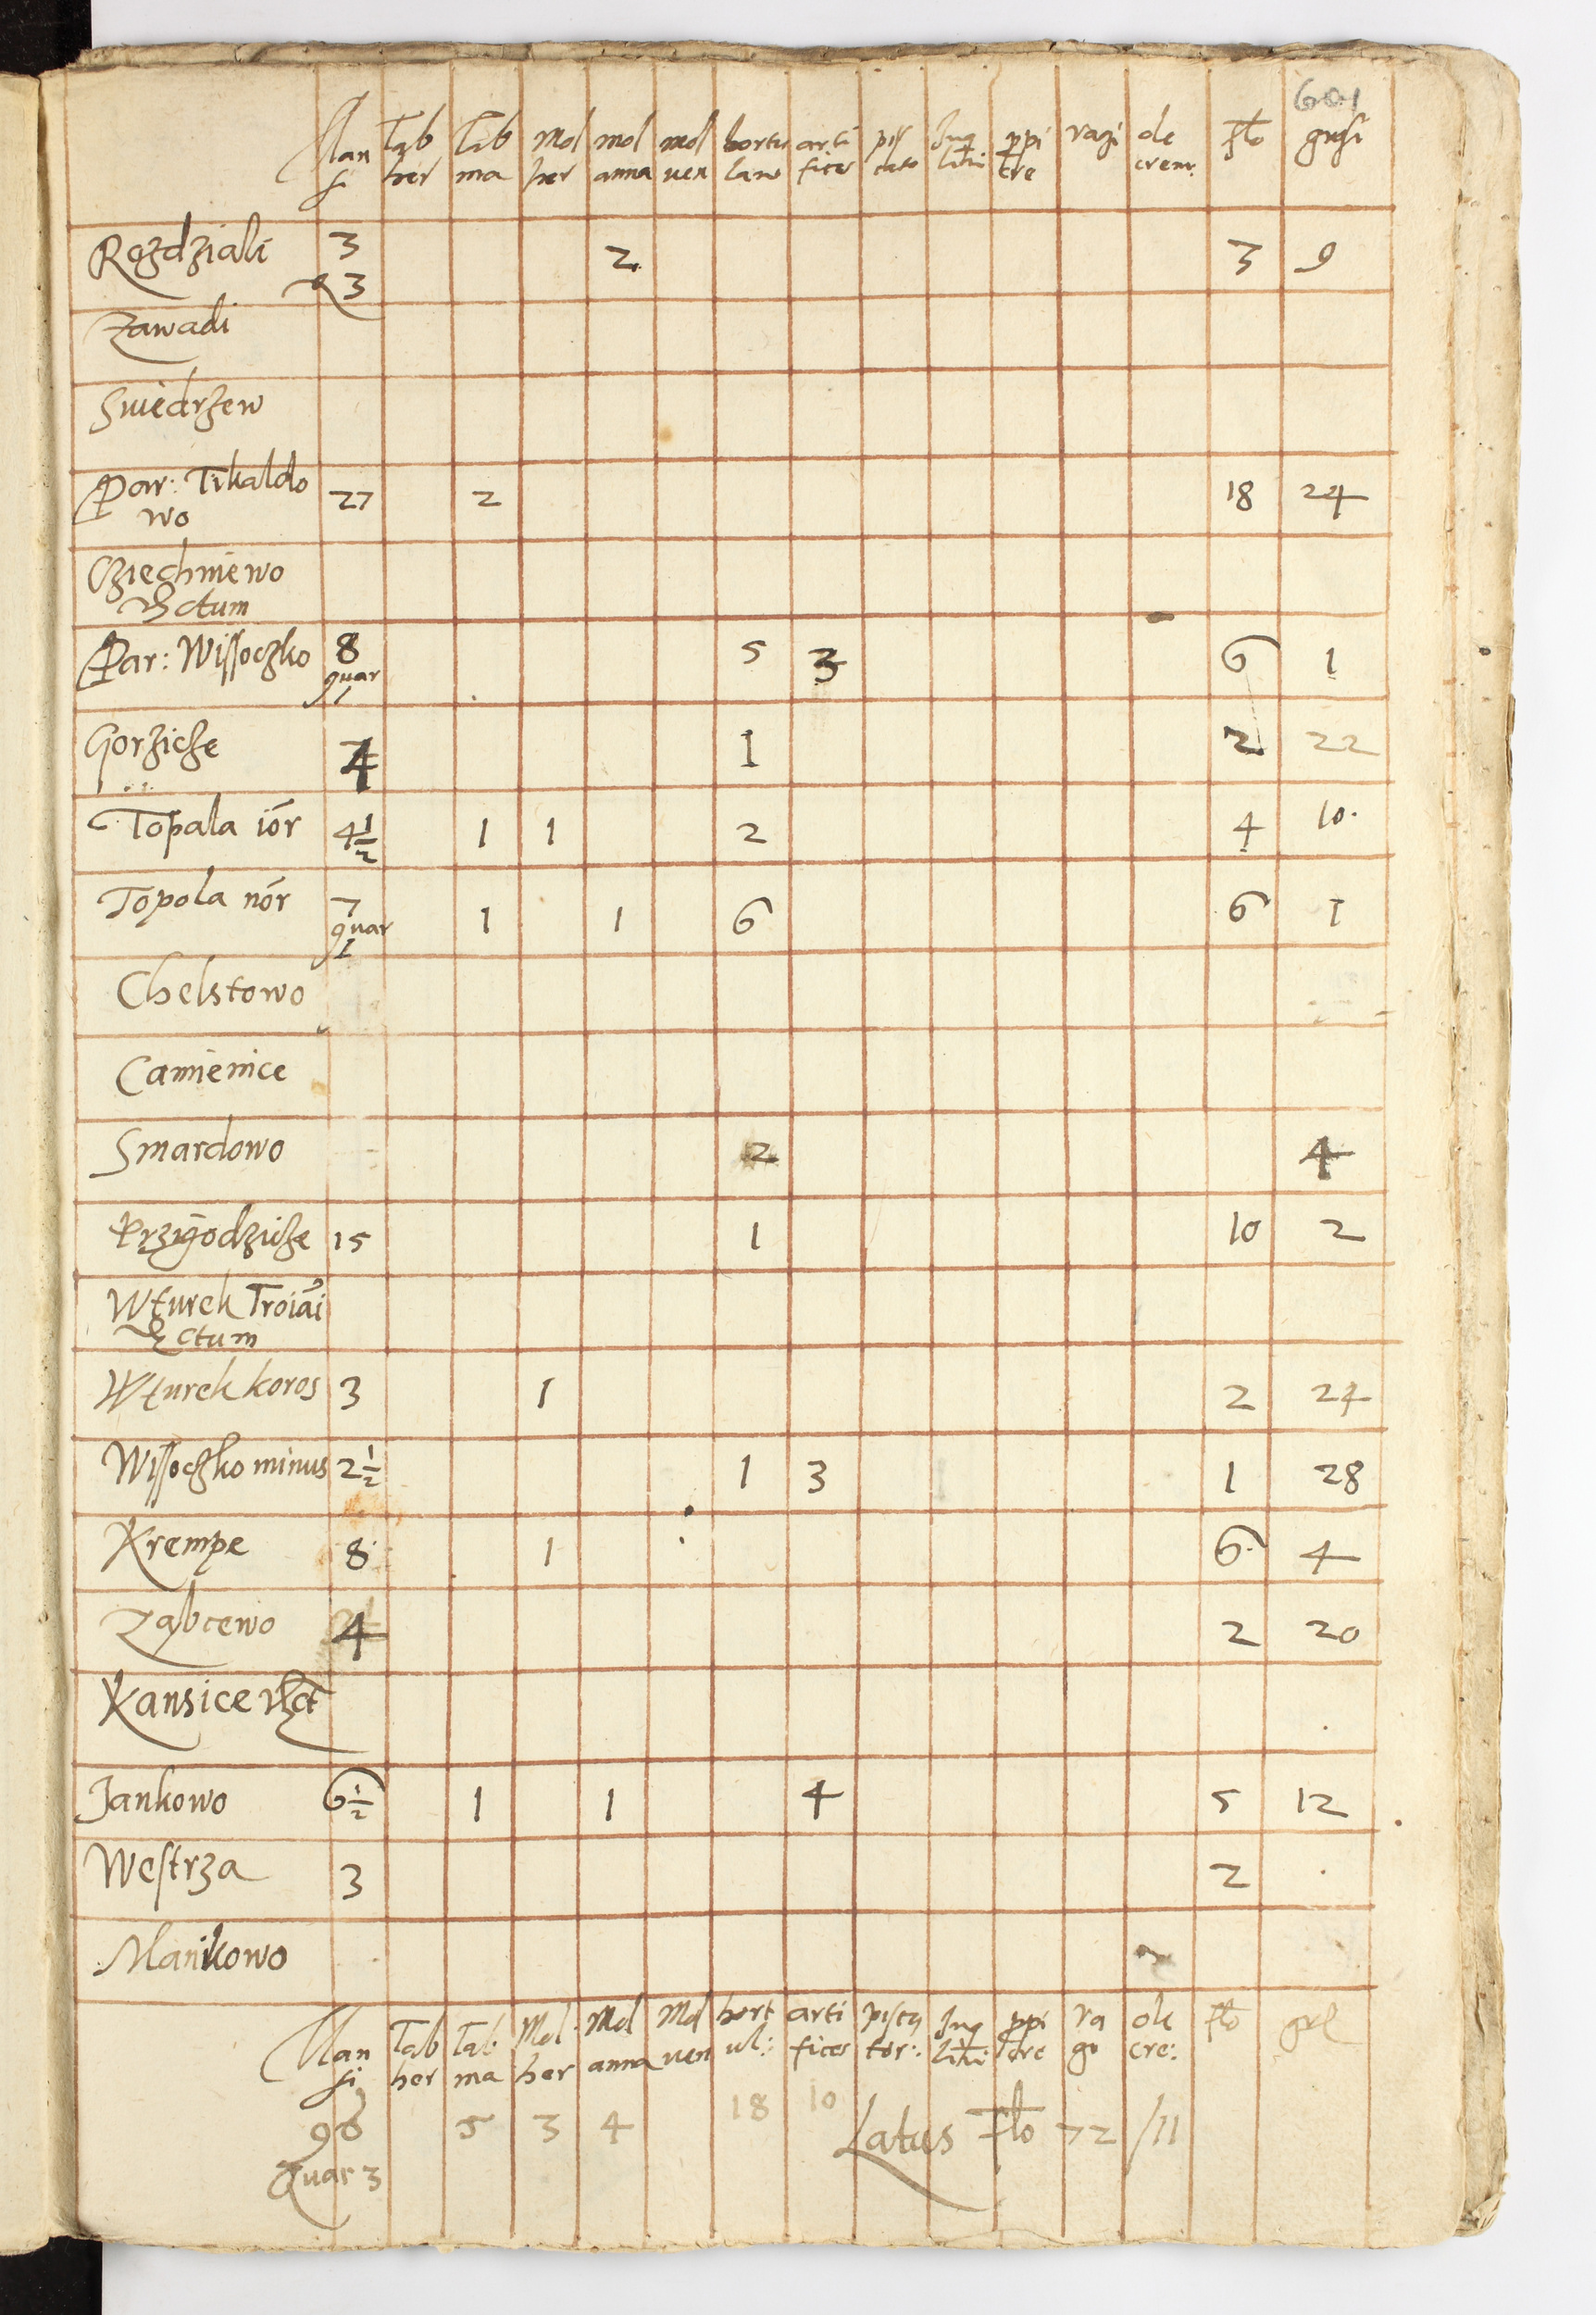 601
Mansi Tab her Tab ma Mol her mol anna mol ven hortulan artifices piscato Inqlini ppitre vagi ole crem: Flo grossi
Rozdziali 3 2 3 9
Q 3
Zawadi
Swiedrzew
Par: Tikaldo
wo 27 2 18 24
Cziechniewo
ctum
Par: Wissoczko 8 5 3 6 1
quar 1
Gorzicze 4 1 2 22
Topala ior 4 1/2 1 1 2 4 10.
Topola nor 7 1 1 6 6 1
quar 1
Chelstowo
Camienice
Smardowo 2 4
Przigodzicze 15 1 10 2
Wturek Troiai
ctum
Wturek koros 3 1 2 24
Wissoczko minus 2 1/2 1 3 1 28
Krempe 8 1 6 4
Ząbcewo 4 2 20
Kansice
Jankowo 6 1/2 1 1 4 5 12
Westrza 3 2
Manikowo
Mansi Tab her Tab ma Mol her Mol anna Mol ven hort ul: artifices piscator: Inqlini ppitre vago ole cre: Flo
96 5 3 4 18 10 Latus Flo 72/11
Quar 3